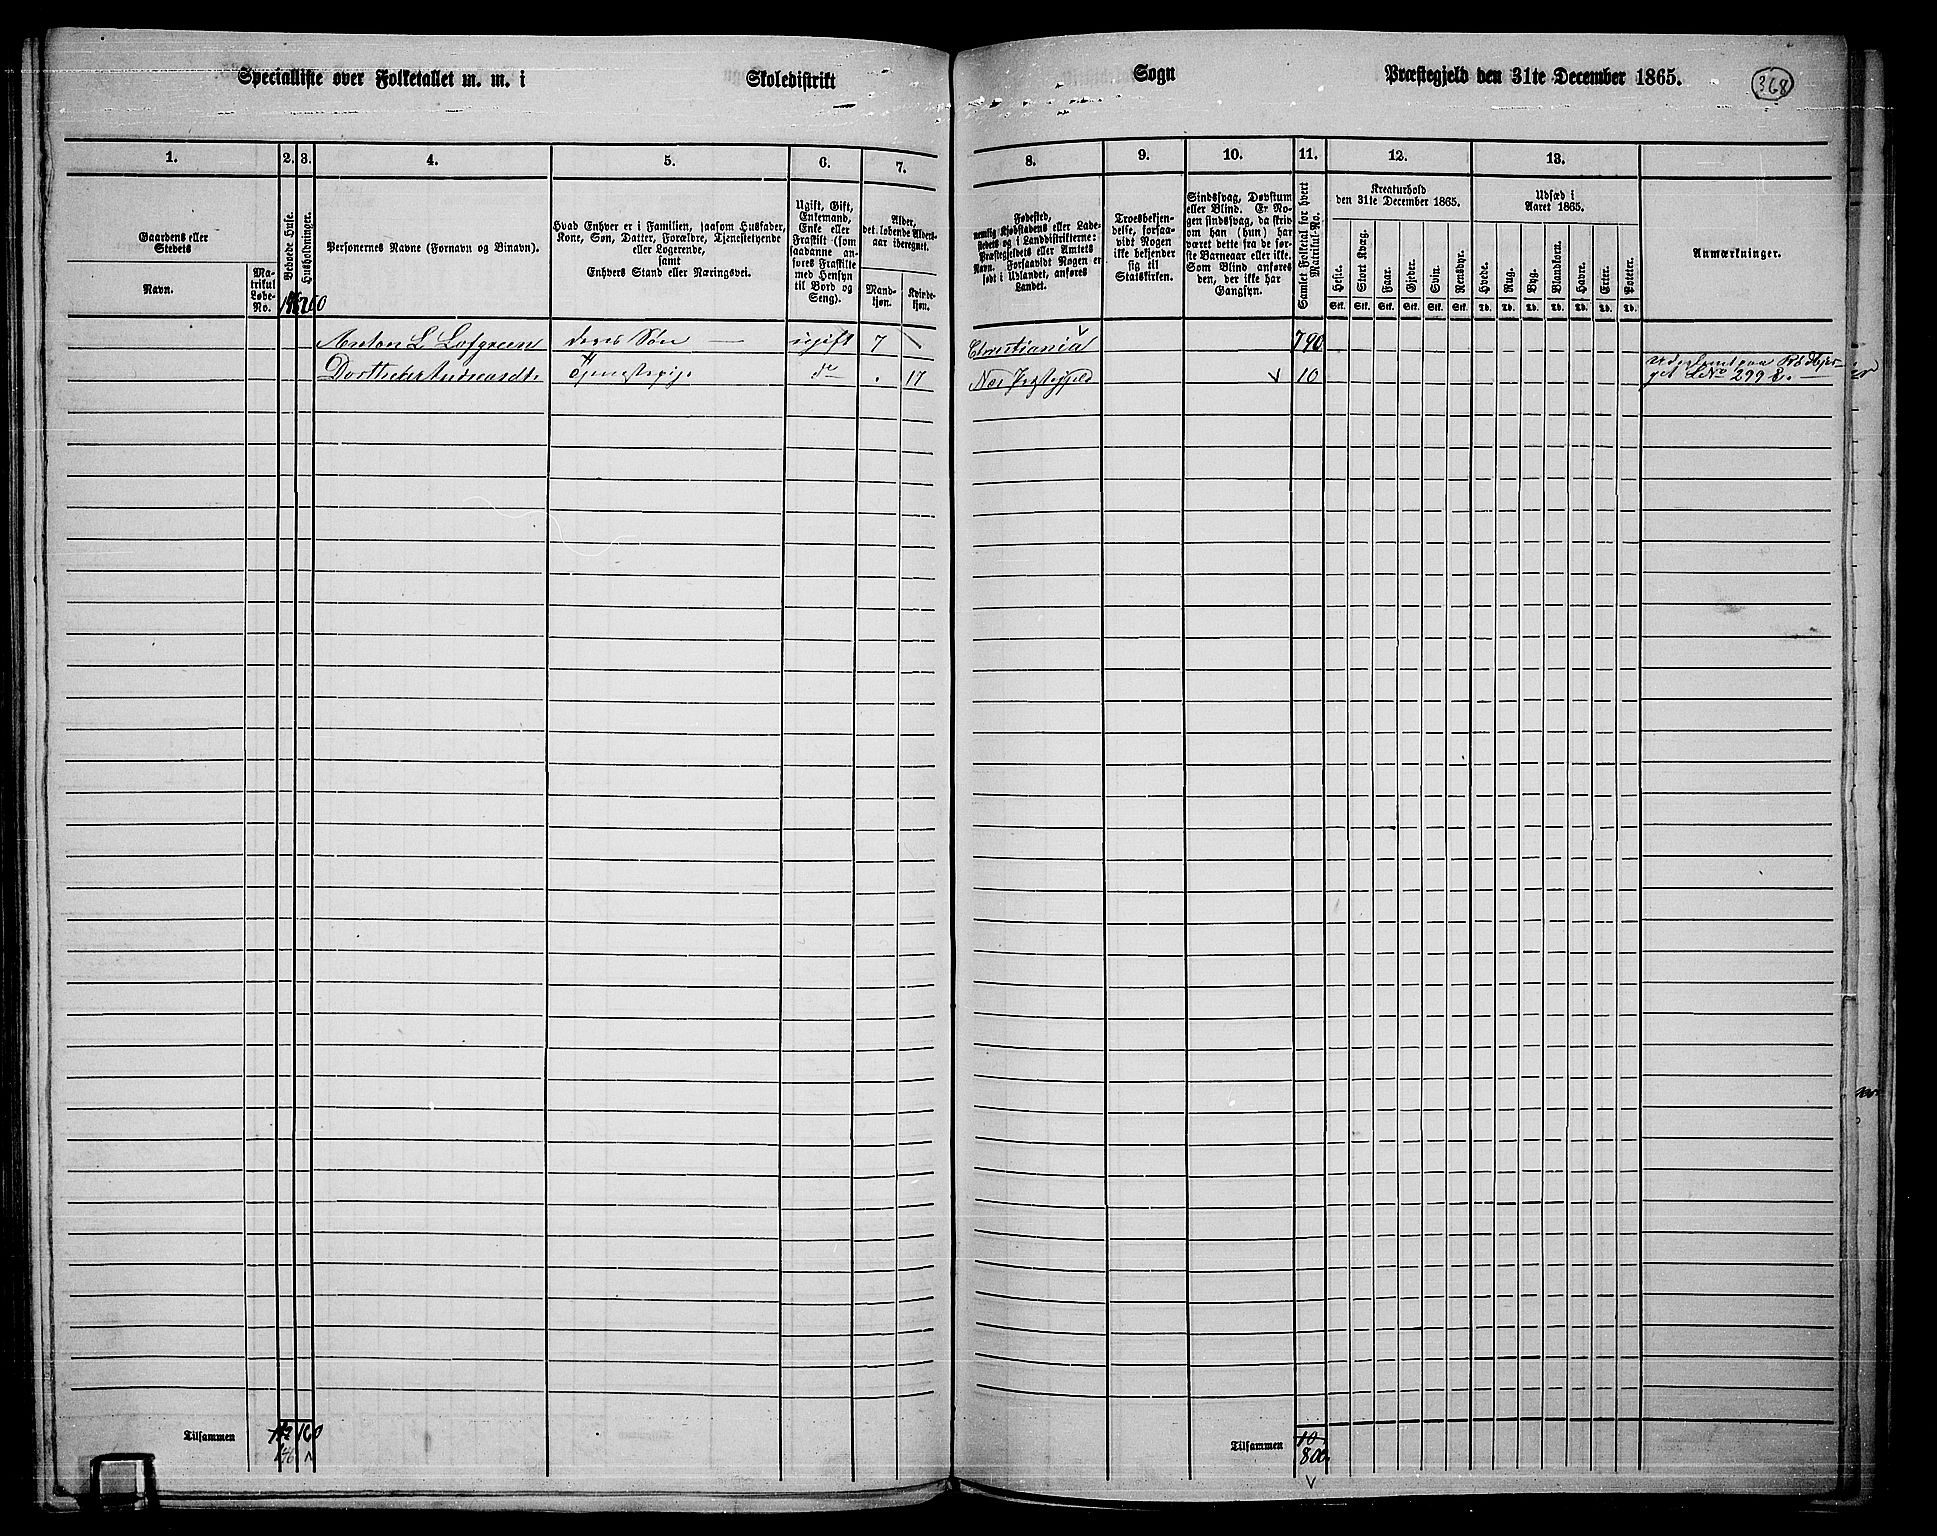 Specialliste over Folketallet m. m. i Skoledistrikt Sogn Præstegjeld den 31te December 1865. 368
1. 2. 3. 4. 5. 6. 7. 8. 9. 10. 11. 12. 13.
Gaardens eller
Stedets
Navn.
Ma-
trikul
Løbe-
No.
Beboede Huse.
Husholdninger.
160
Personernes Navne (Fornavn og Binavn).
Hvad Enhver er i Familien, saasom Husfader,
Kone, Søn, Datter, Forældre, Tjenestetyende
eller Logerende,
samt
Enhvers Stand eller Næringsvei.
Ugift, Gift,
Enkemand,
Enke eller
Fraskilt (som
saadanne an-
føres Fraskilte
med Hensyn
til Bord og
Seng).
Alder,
det løbende Alders-
aar iberegnet.
Mand-
kjøn.
Kvinde-
kjøn.
Fødested,
nemlig Kjøbstadens eller Lade-
stedets og i Landdistrikterne:
Præstegjeldets eller Amtets
Navn. Forsaavidt Nogen er
født i Udlandet, anføres
Landet.
Troesbekjen-
delse, forsaa-
vidt Nogen
ikke bekjender
sig til
Statskirken.
Sindssvag, Døvstum
eller Blind. Er No-
gen sindssvag, da skriv
om han (hun) har
været dette fra de før-
ste Barneaar eller ikke.
Som Blind anføres
den, der ikke har
Gangsyn.
Samlet Folketal for hvert
Matrikul-No.
Kreaturhold
den 31te December 1865.
Heste. Stort Kvæg. Faar. Gjeder. Svin. Rensdyr.
Stk. Stk. Stk. Stk. Stk. Stk.
Udsæd i
Aaret 1865.
Hvede. Rug. Byg. Blandkorn. Havre. Erter. Poteter.
Td. Td. Td. Td. Td. Td. Td.
Anmærkninger.
Anton L. Lofgreen deres Søn — ugift 7 Christiania 790
Tjenestepige do 17 Næs Præstegjeld 10
LNo 299
Tilsammen 160
146
Tilsammen 10
800